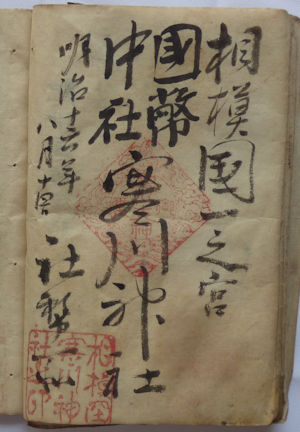 相模國一之宮
國幣
中社
寒川神社
明治十六年
八月十四日
社務所
相模国
寒川神
社之印